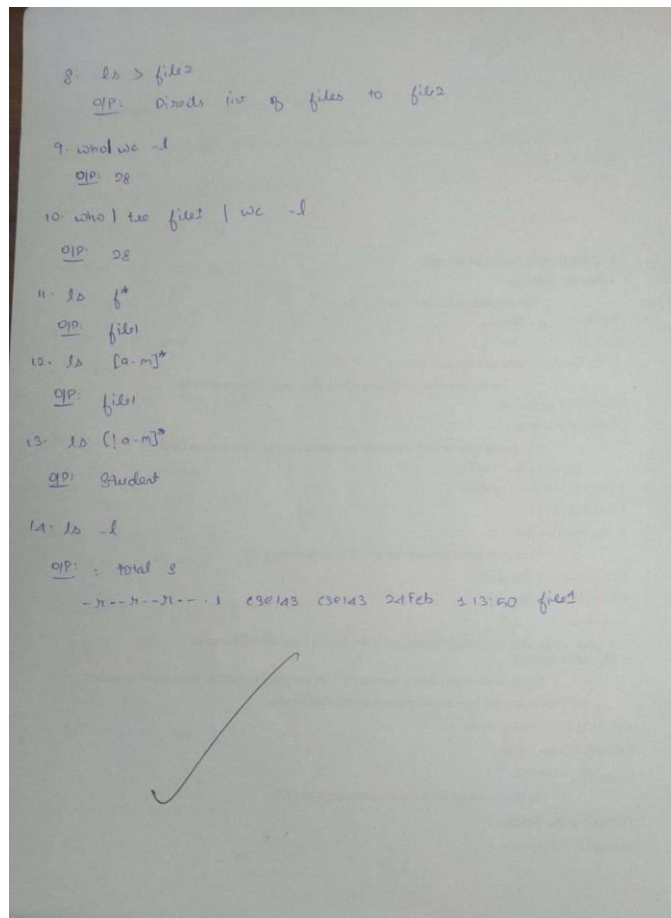 8. ls > file2
O/P: Directs list of files to file2
9. who| wc -l
O/P: 28
10. who | tee file1 | wc -l
O/P: 28
11. ls f*
O/P: file1
12. ls [a-m]*
O/P: file1
13. ls [! a-m]*
O/P: Student
14. ls -l
O/P: : total 8
-r--r--r--. 1 cse143 cse143 24 Feb 1 13:50 file1